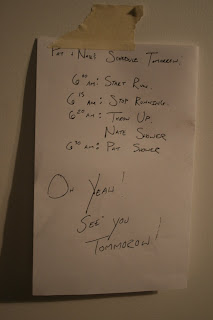 Pat & Nate Schedule Tomorrow.
6⁰⁰ am: Start Run.
6¹⁵ am: Stop Running.
6²⁰ am: Throw Up.
Nate Shower
6³⁰ am: Pat Shower
Oh Yeah!
See you
Tommorow!